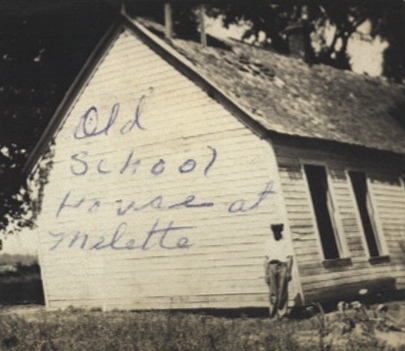 Old
School
House at
Melette